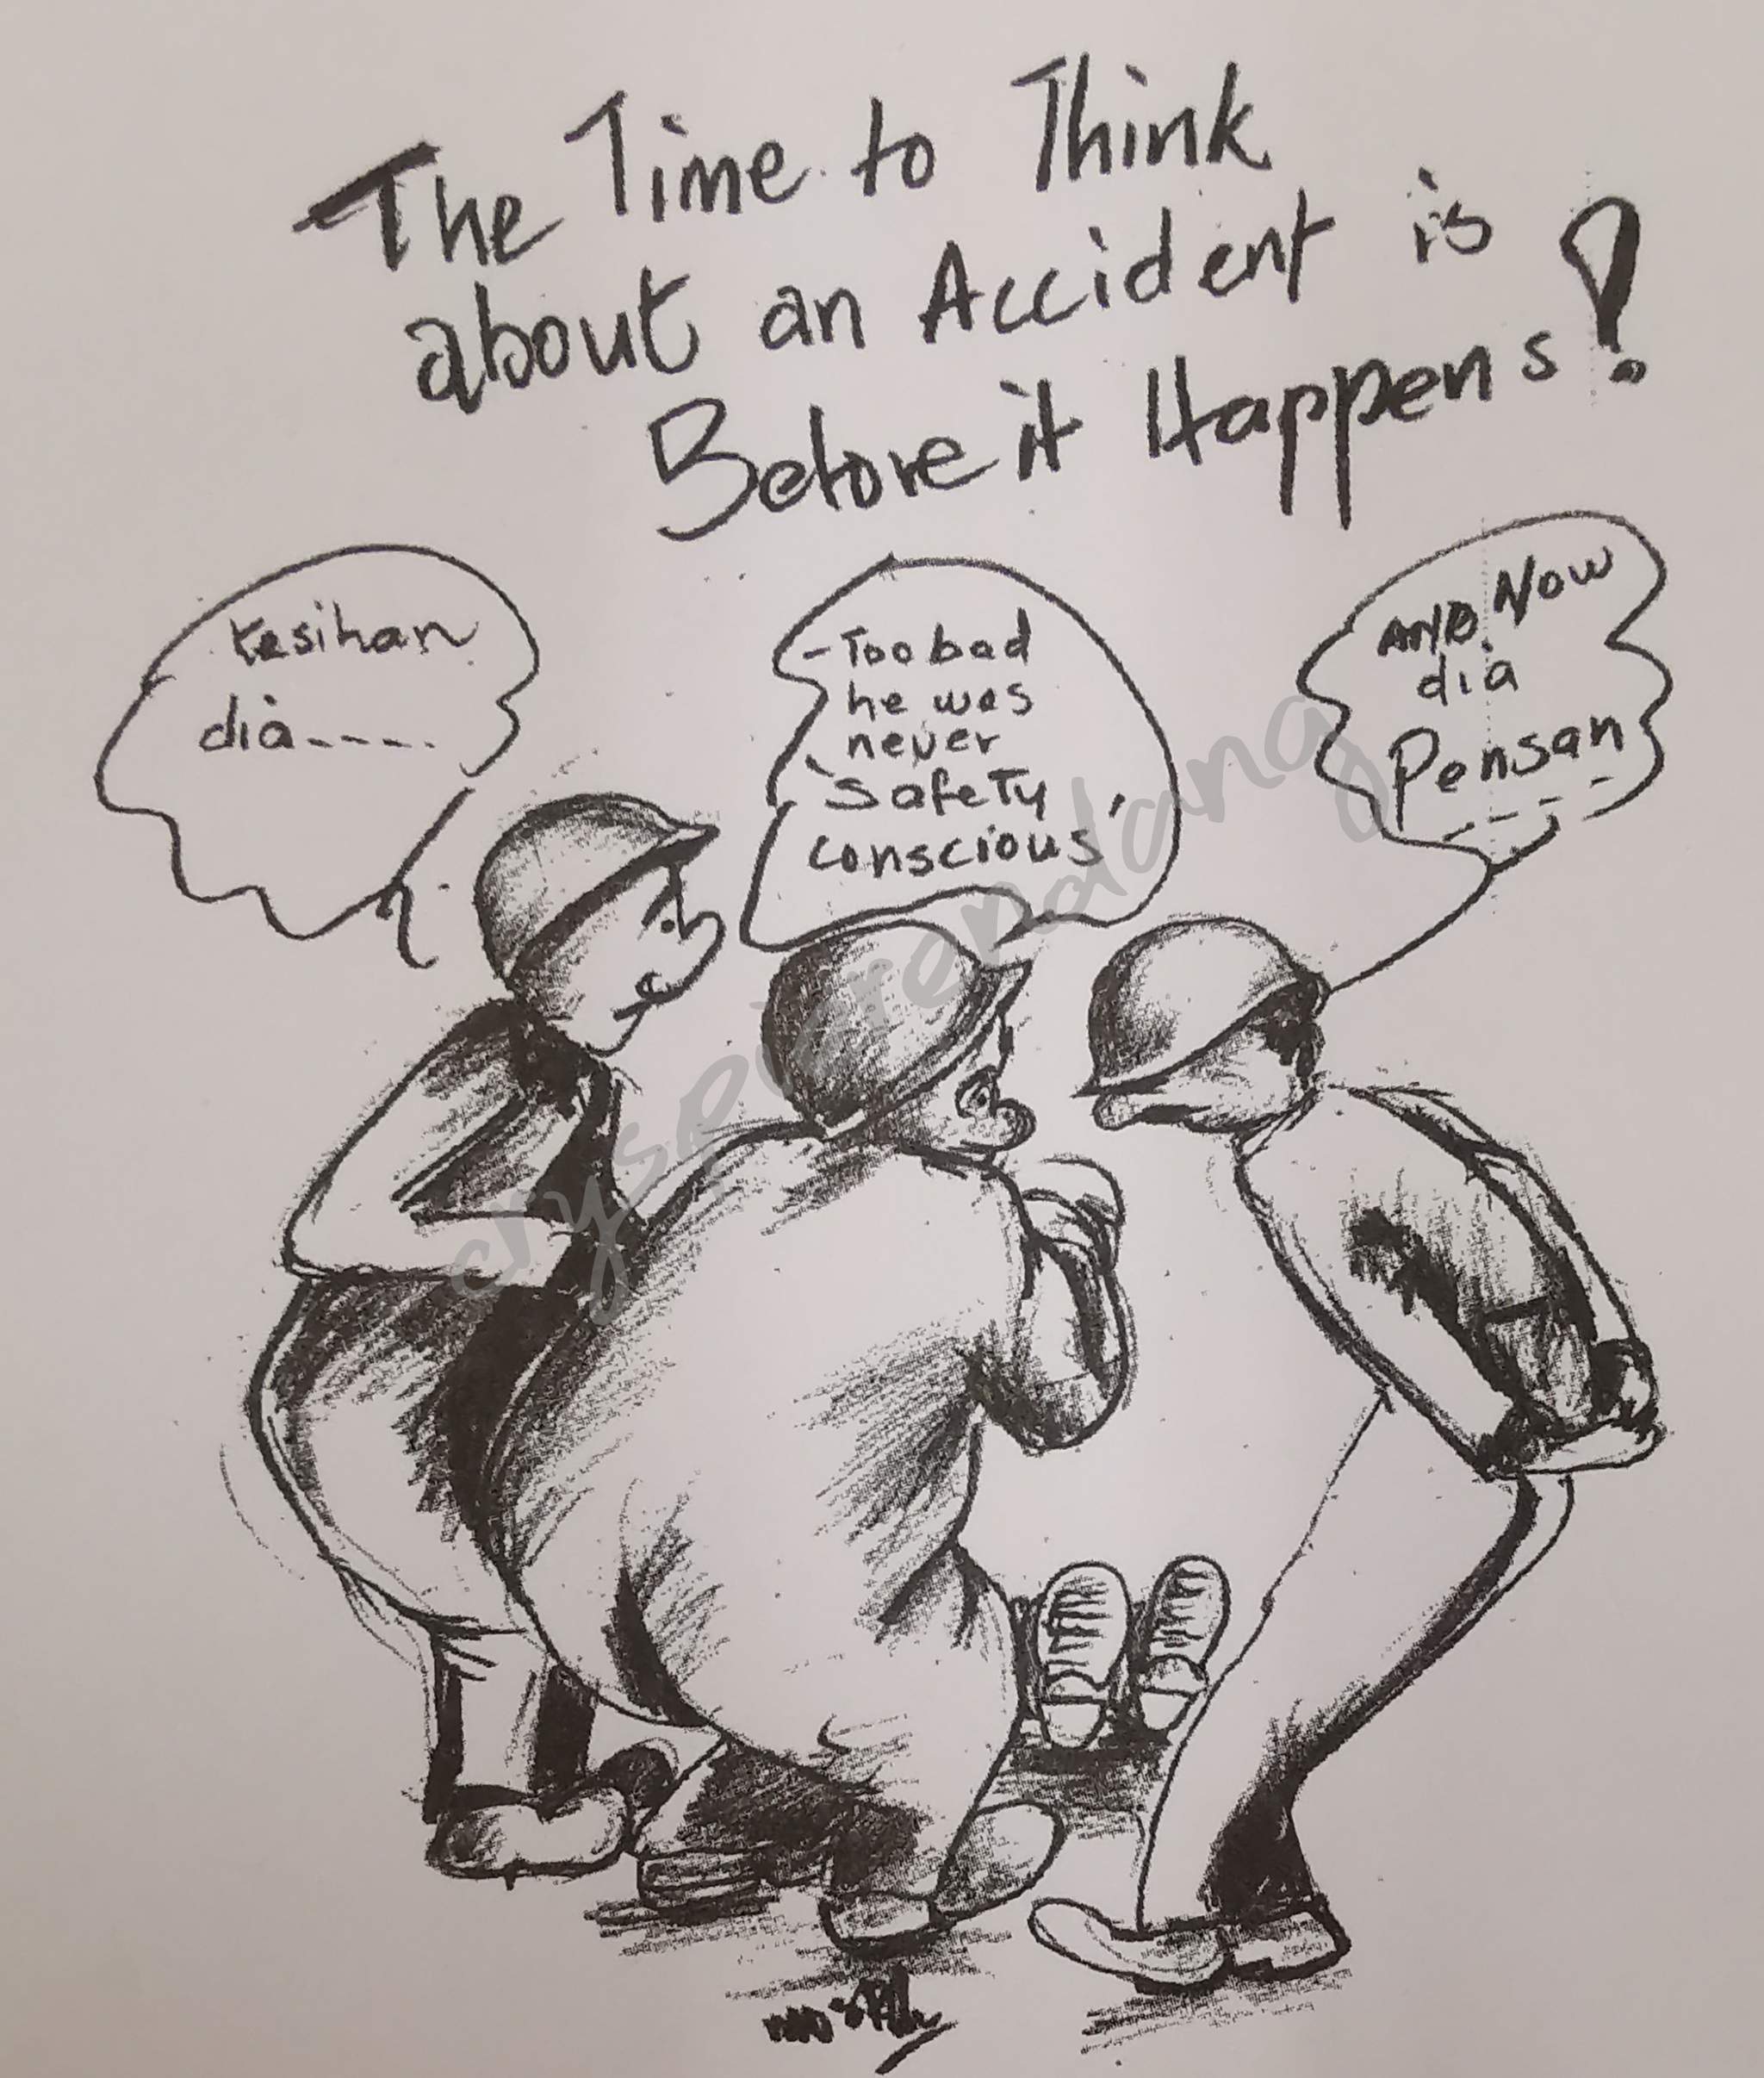 The Time to Think
about an Accident is
Before it Happens!
Kesihan
dia-----
-Too bad
he was
never
`Safety
conscious'
AND NOW
dia
Pensan
----
cryspiərendang